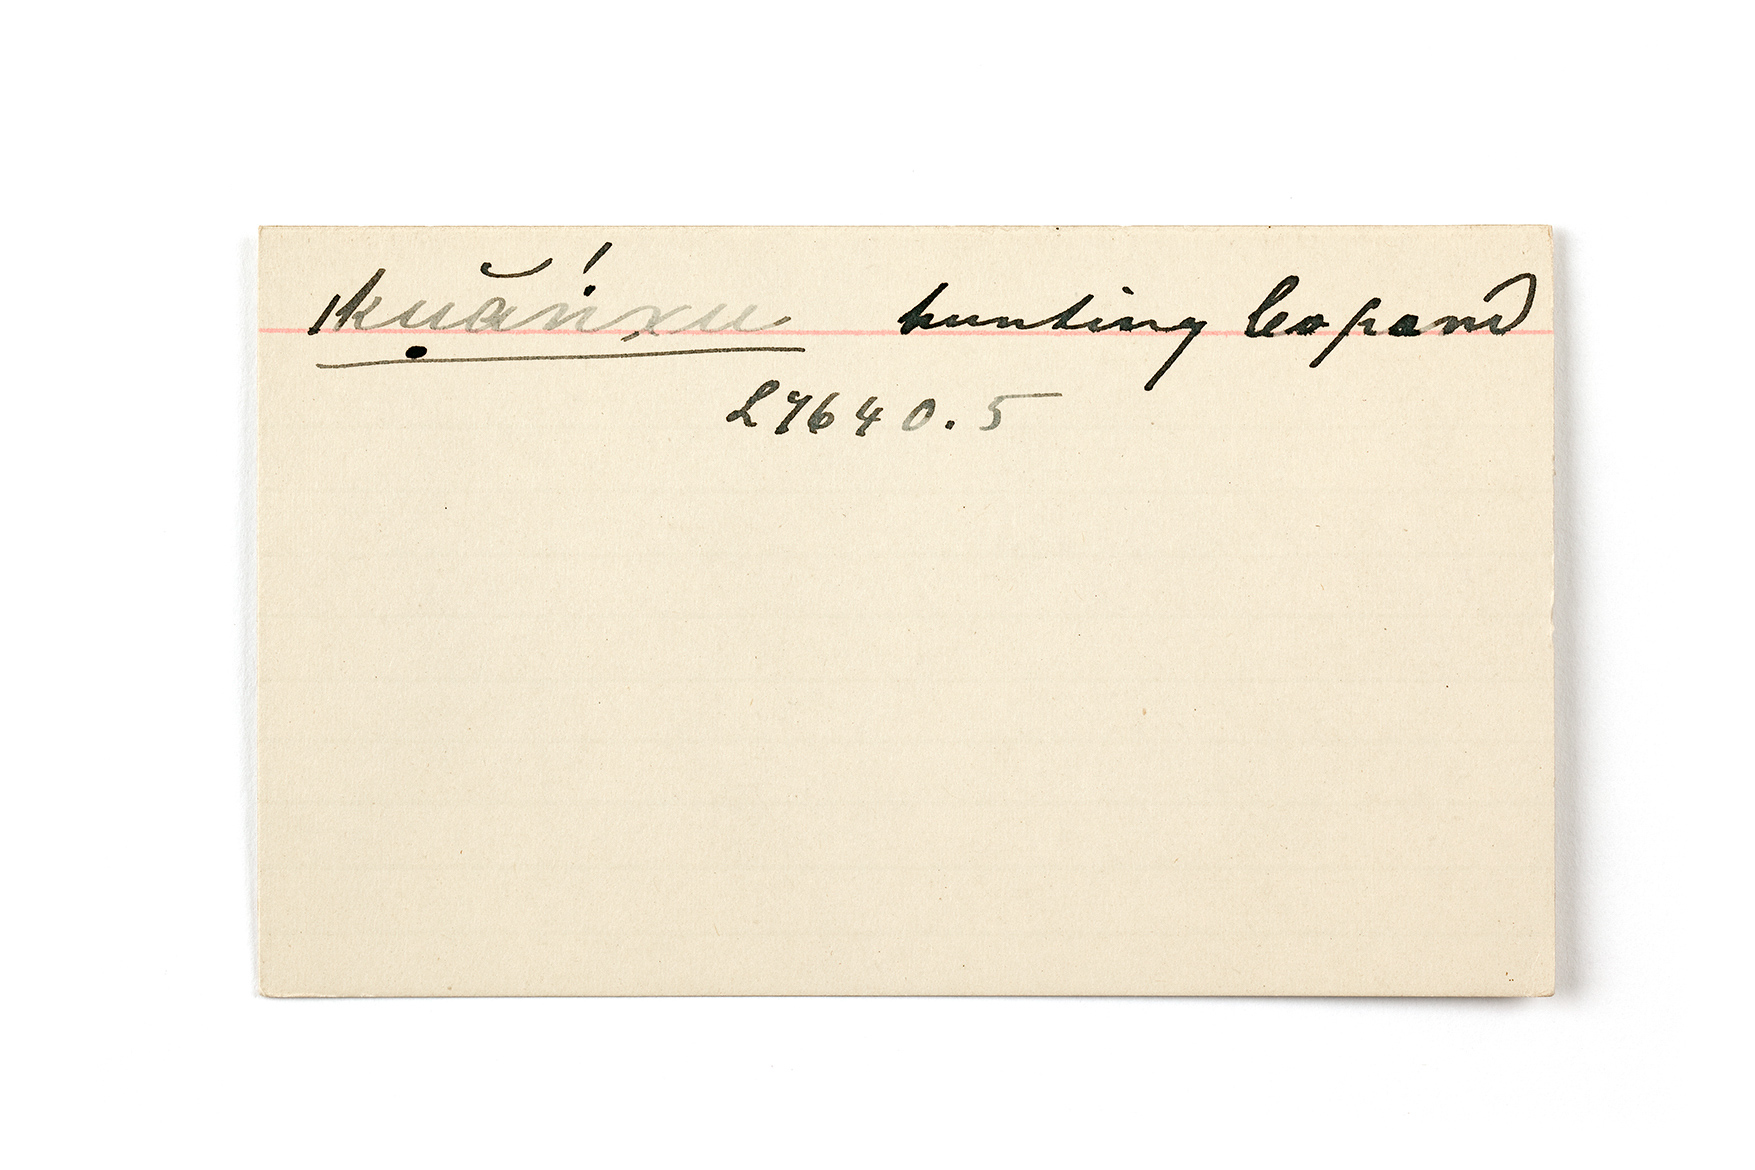 ǀkụăṅxu hunting leopard
L7640.5